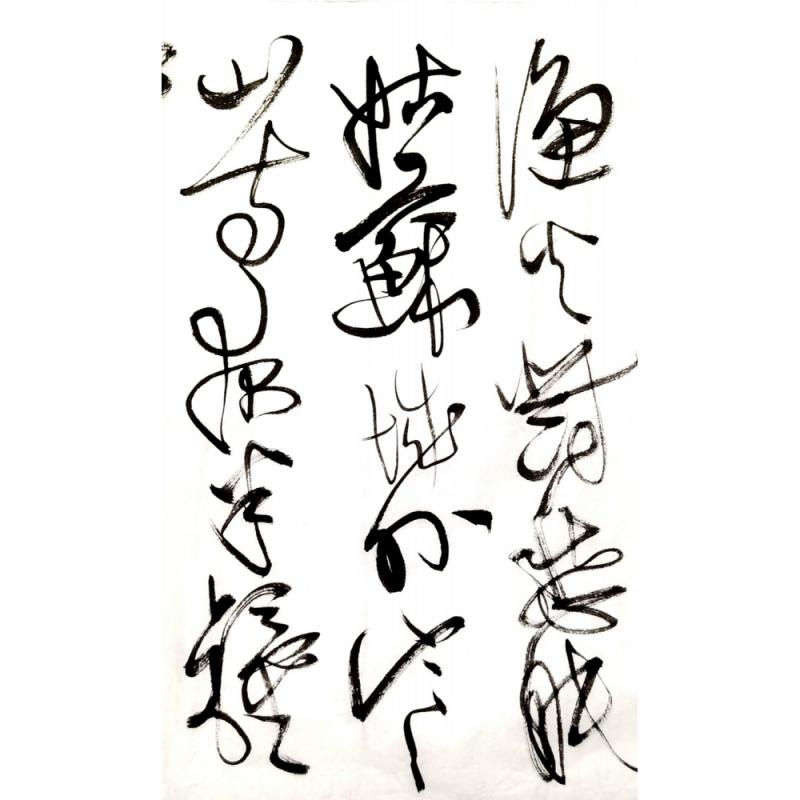 漁火對愁眠
姑蘇城外寒
山寺夜半鐘